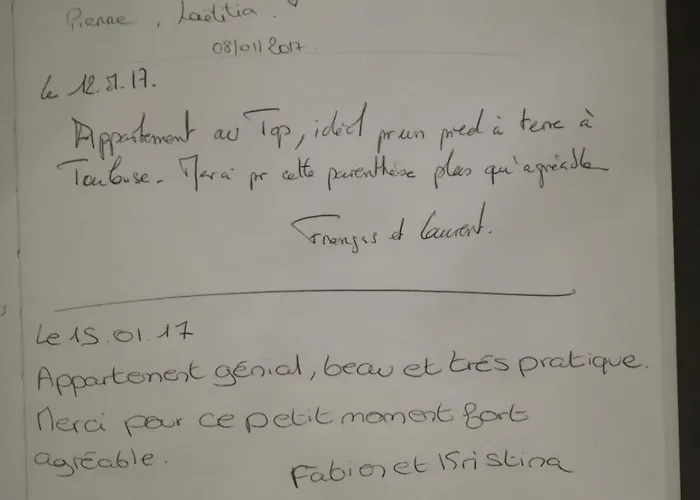 Pierre, Laëtitia.
08/01/2017
Le 12.01.17.
Appartement au Top, idéal pr un pied à terre à
Toulouse. Merci pr cette parenthèse plus qu'agréable
François et Laurent.
Le 15.01.17
Appartement génial, beau et très pratique.
Merci pour ce petit moment fort
agréable.
Fabien et Kristina